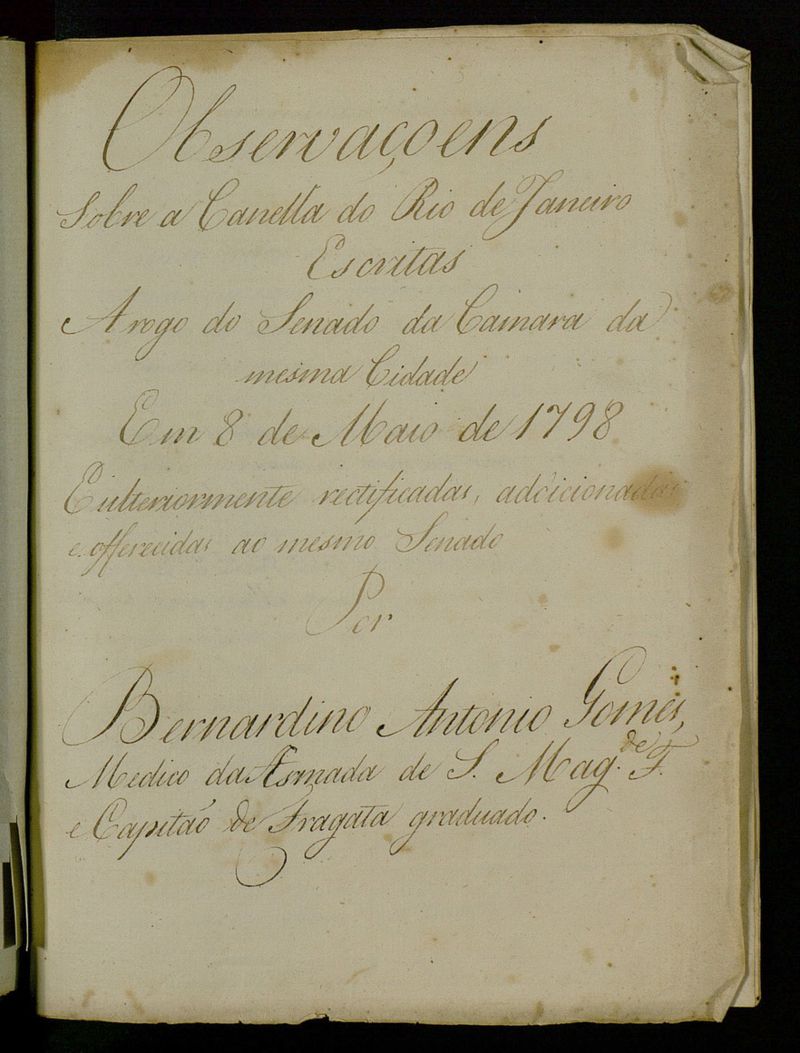 Observaçoens
Sobre a Canella do Rio de Janeiro
Escritas
A rogo do Senado da Camara da
mesma Cidade
Em 8 de Maio de 1798
E ulteriormente rectificadas, addicionadas
e offerecidas ao mesmo Senado
Por
Bernardino Antonio Gomes,
Medico da Armada de S. Mag.de F.
e Capitaõ de Fragata graduado.